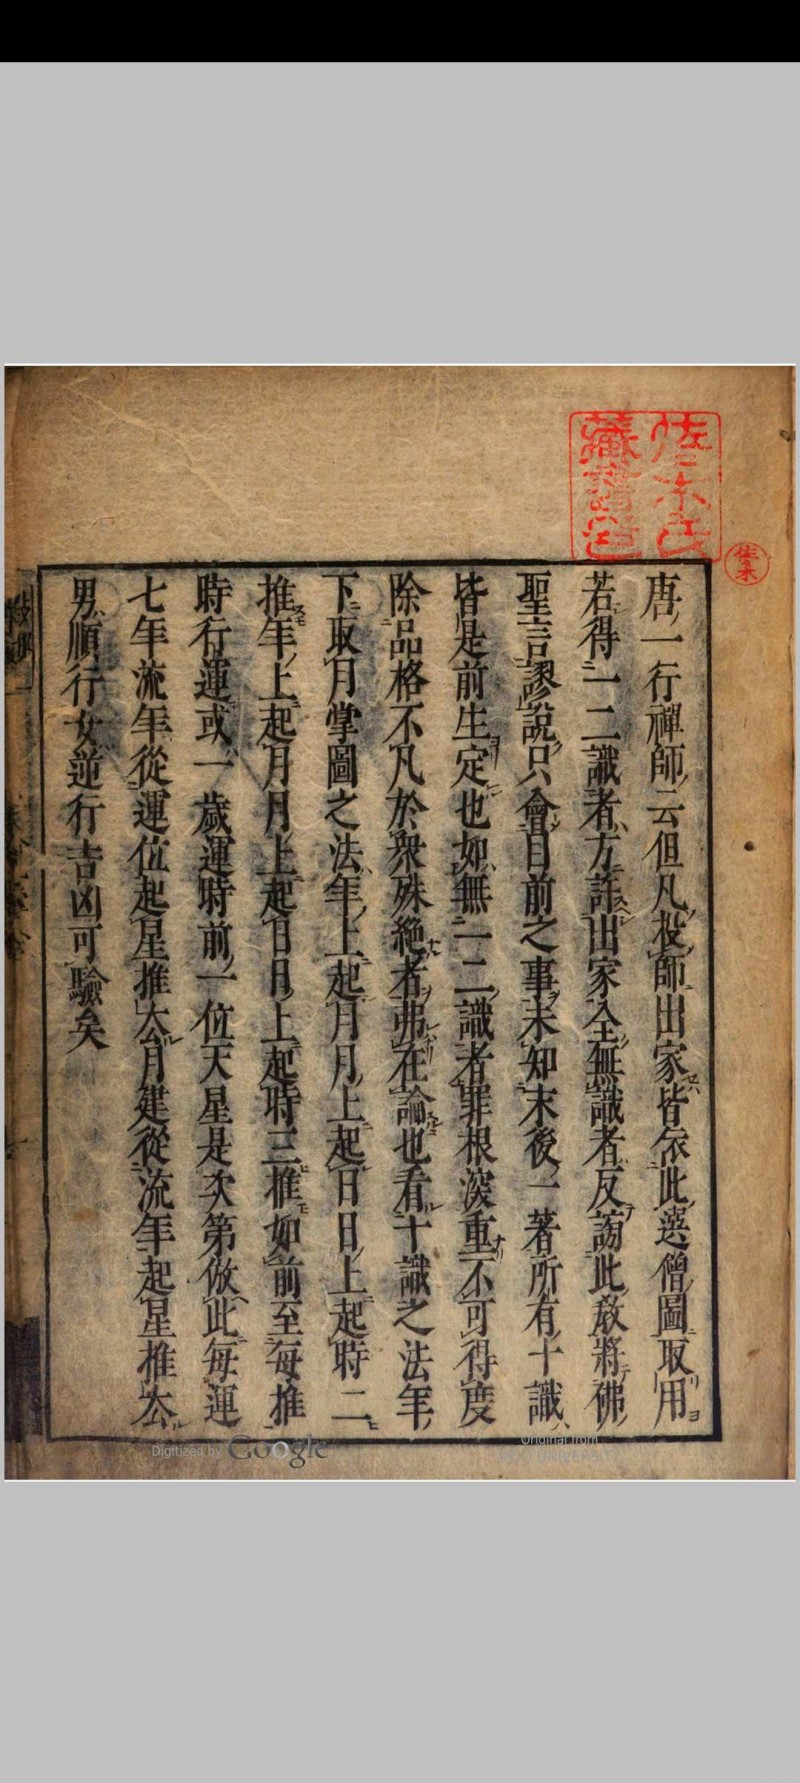 佐々木氏
藏書邑
佐々木
唐一行禪師云但凡投師出家皆依此選僧圖取用
若得一二識者方許出家全無識者反謗此教將佛
聖言謬說只會目前之事未知末後一著所有十識
皆是前生定也如無一二識者罪根深重不可得度
除品格不凡於衆殊絶者弗在論也看十識之法年
下取月掌圖之法年上起月月上起日日上起時二
推年上起月月上起日日上起時三推如前至每推
時行運或一歲運時前一位天星是次第倣此每運
七年流年從運位起星推去月建從流年起星推去
男順行女逆行吉凶可驗矣
Digitized by Google
Original from
UNIVERSITY